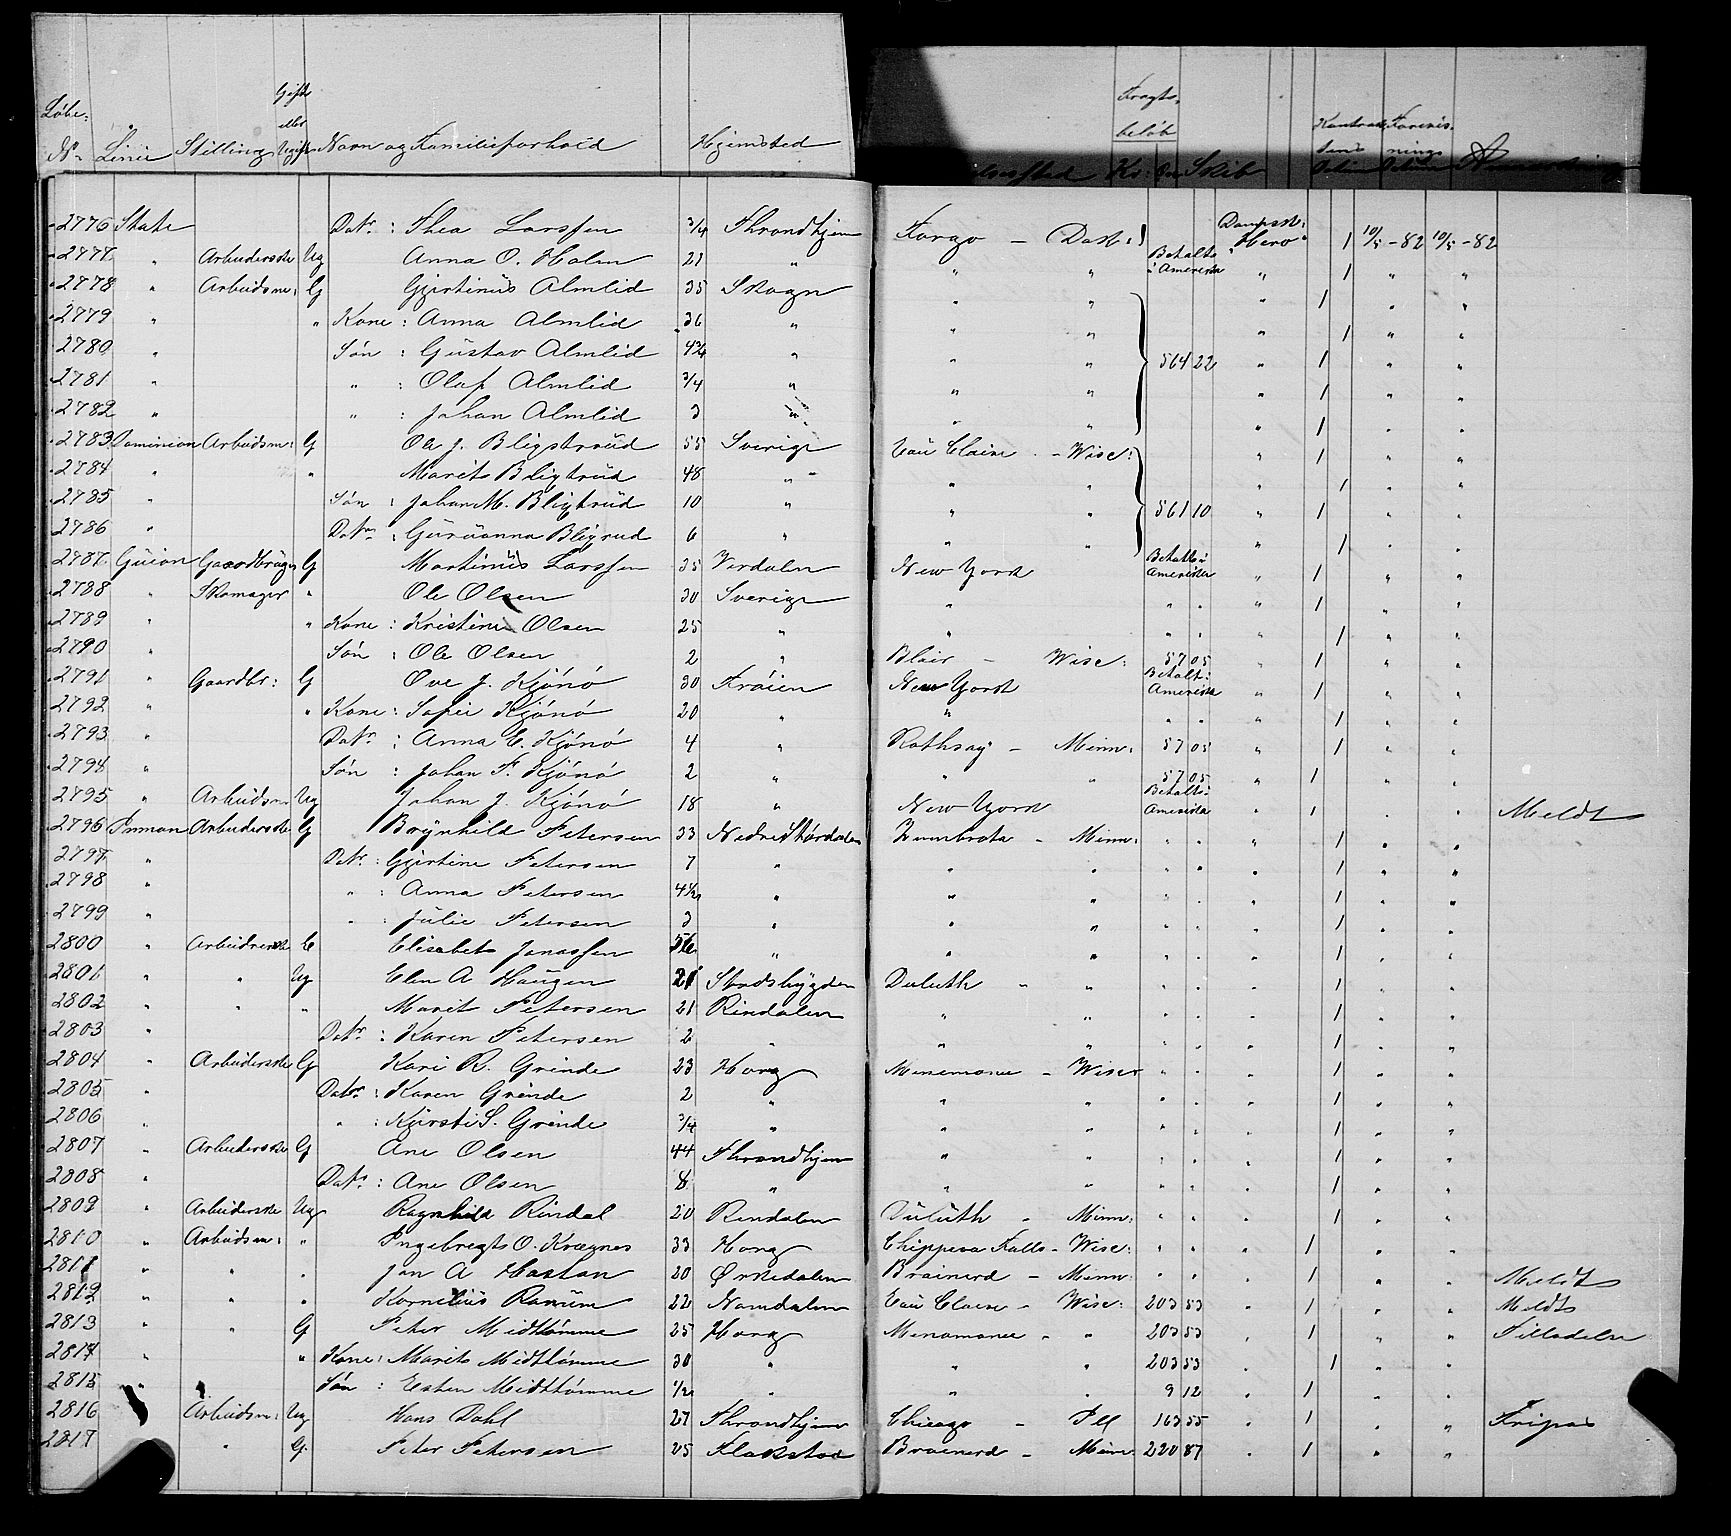 Løbe- Nº Linie Stilling Gift eller Ugift Navn og Familieforhold Hjemsted Fragtbeløb Kr: Skib
2776 State Datr: Thea Larssen 3/4 Throndhjem Fargo – Dact:! Dampsk: "Hero" 1 10/5-82 10/5-82
2777 " Arbeiderske Ug Anna O. Holen 21 " " " Betalt i Amerika " 1 " "
2778 " Arbeidsm: G Gjertinus Almlid 35 Skogn " " " 1 " "
2779 " " Kone: Anna Almlid 36 " " " " 1 " "
2780 " Søn: Gustav Almlid 4 3/4 " " " 564 22 " 1 " "
2781 " " : Olaf Almlid 3/4 " " " " 1 " "
2782 " " : Johan Almlid 3 " " " " 1 " "
2783 Dominion Arbeidsm: G Ole J. Bligstrud 55 Sverige Eau Claire – Wisc: " 1 " "
2784 " " Marit Bligtrud 48 " " " " 1 " "
2785 " Søn: Johan M. Bligtrud 10 " " " 561 10 " 1 " "
2786 " Datr: Guruanna Bligrud 6 " " " " 1 " "
2787 Guion Gaardbruger G Martinus Larssen 35 Værdalen New York Betalt i Amerika " 1 " "
2788 " Skomager " Ole Olsen 30 Sverige " " " " 1 " "
2789 " " Kone: Kristine Olsen 25 " " 1 " "
2790 " Søn: Ole Olsen 2 " Blair – Wisc: 57 05 " 1 " "
2791 " Gaardbr: G Ove J. Kjönö 30 Frøien New York Betalt i Amerika " 1 " "
2792 " " Kone: Sofie Kjönö 20 " " " " " 1 " "
2793 " Datr: Anna E. Kjönö 4 " Rothsay – Minn: 57 05 " 1 " "
2794 " Søn: Johan F. Kjönö 2 " " " 57 05 " 1 " "
2795 " Arbeidsm Ug Johan J. Kjönö 18 " New York Betalt i Amerika " 1 " " Meldt
2796 Inman Arbeiderske G Brynhild Petersen 33 Nedre Stördalen Zumbrota – Minn: " " " 1 " "
2797 " Datr: Gjertine Petersen 7 " " " " " " 1 " "
2798 " " : Anna Petersen 4 1/2 " " " " " " 1 " "
2799 " " Julie Petersen 3 " " " " " " 1 " "
2800 " Arbeiderske E Elisabet Jonassen 56 " " " " " " 1 " "
2801 " " Ug Elen A Haugen 21 Stadsbygden Duluth " " " " " 1 " "
2802 " " " Marit Petersen 21 Rindalen " " " " " 1 " "
2803 " Datr: Karen Petersen 2 " " " " " " 1 " "
2804 " Arbeiderske G Kari R. Grinde 23 Horg Menomonee – Wisc " " " 1 " "
2805 " Datr: Karen Grinde 2 " " " " " " 1 " "
2806 " " : Kjersti S. Grinde 3/4 " " " " " " 1 " "
2807 " Arbeiderske G Ane Olsen 44 Throndhjem " " " " " 1 " "
2808 " Datr: Ane Olsen 8 " " " " " " 1 " "
2809 " Arbeiderske Ug Ragnhild Rindal 20 Rindalen Duluth – Minn: " " " 1 " "
2810 " Arbeidsm: " Ingebregt O. Krægnes 33 Horg Chippeva Falls – Wisc: " " " 1 " "
2811 " " " Jon A Hastan 20 Ørkedalen Brainerd – Minn: " " " 1 " " Meldt
2812 " " " Kornelius Ranum 22 Namdalen Eau Claire – Wisc: 203 53 " 1 " " Meldt
2813 " " G Peter Midttömme 25 Horg Menomonee – " 203 53 " 1 " "
2814 " " Kone: Marit Midttömme 30 " " " 203 53 " 1 " "
2815 " Søn: Esten Midttömme 1/2 " " " 9 12 " 1 " "
2816 Arbeidsm: Ug Hans Dahl 27 Throndhjem Chicago – Ill 163 55 " 1 " " Fripas
2817 " G. Peter Petersen 25 Flakstad Brainerd – Minn 220 87 " 1 " "